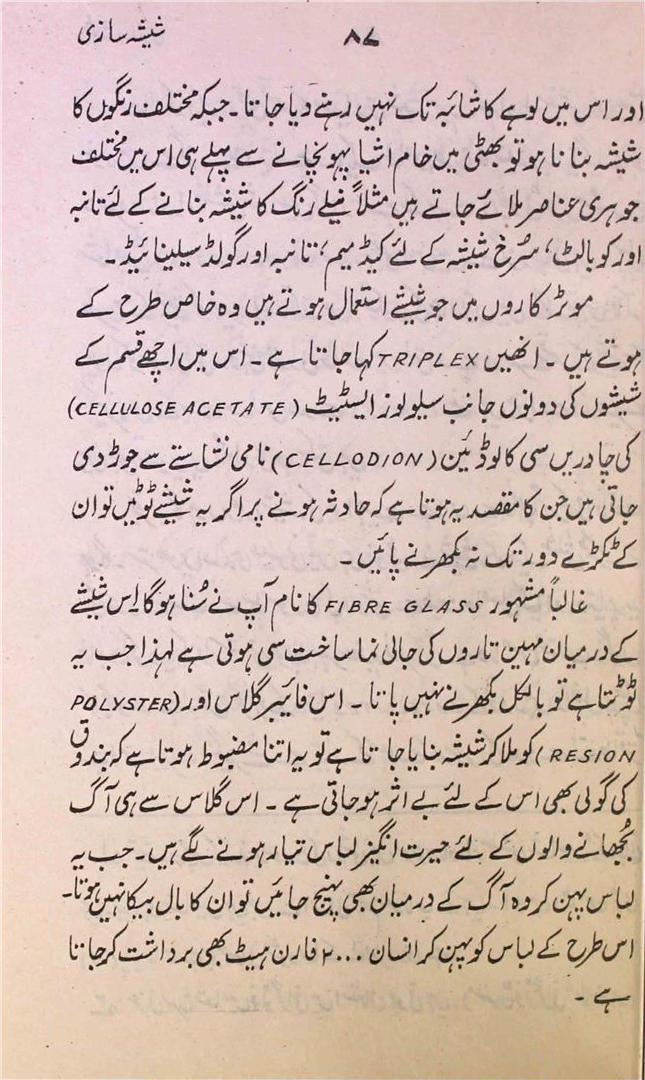 شیشہ سازی ۸۷
اور اس میں لوہے کا شائبہ تک نہیں رہنے دیا جاتا۔ جبکہ مختلف رنگوں کا
شیشہ بنانا ہو تو بھٹی میں خام اشیا پہونچانے سے پہلے ہی اس میں مختلف
جوہری عناصر ملائے جاتے ہیں مثلاً نیلے رنگ کا شیشہ بنانے کے لئے تانبہ
اور کوبالٹ، سُرخ شیشہ کے لئے کیڈمیم، تانبہ اور گولڈ سیلینائیڈ۔
موٹر کاروں میں جو شیشے استعمال ہوتے ہیں وہ خاص طرح کے
ہوتے ہیں۔ انھیں TRIPLEX کہا جاتا ہے۔ اس میں اچھے قسم کے
شیشوں کی دونوں جانب سیلولوز ایسٹیٹ (CELLULOSE ACETATE)
کی چادریں سی کالوڈئین (CELLODION) نامی نشاستے سے جوڑ دی
جاتی ہیں جن کا مقصد یہ ہوتا ہے کہ حادثہ ہونے پر اگر یہ شیشے ٹوٹیں تو ان
کے ٹکڑے دور تک نہ بکھرنے پائیں۔
غالباً مشہور FIBRE GLASS کا نام آپ نے سُنا ہوگا اِس شیشے
کے درمیان مہین تاروں کی جالی نما ساخت سی ہوتی ہے لہٰذا جب یہ
ٹوٹتا ہے تو بالکل بکھرنے نہیں پاتا۔ اس فائیبر گلاس اور (POLYSTER
RESION) کو ملا کر شیشہ بنایا جاتا ہے تو یہ اتنا مضبوط ہوتا ہے کہ بندوق
کی گولی بھی اس کے لئے بے اثر ہو جاتی ہے۔ اس گلاس سے ہی آگ
بُجھانے والوں کے لئے حیرت انگیز لباس تیار ہونے لگے ہیں۔ جب یہ
لباس پہن کر وہ آگ کے درمیان بھی پہنچ جائیں تو ان کا بال بیکا نہیں ہوتا۔
اس طرح کے لباس کو پہن کر انسان ۲۰۰۰ فارن ہیٹ بھی برداشت کر جاتا
ہے۔